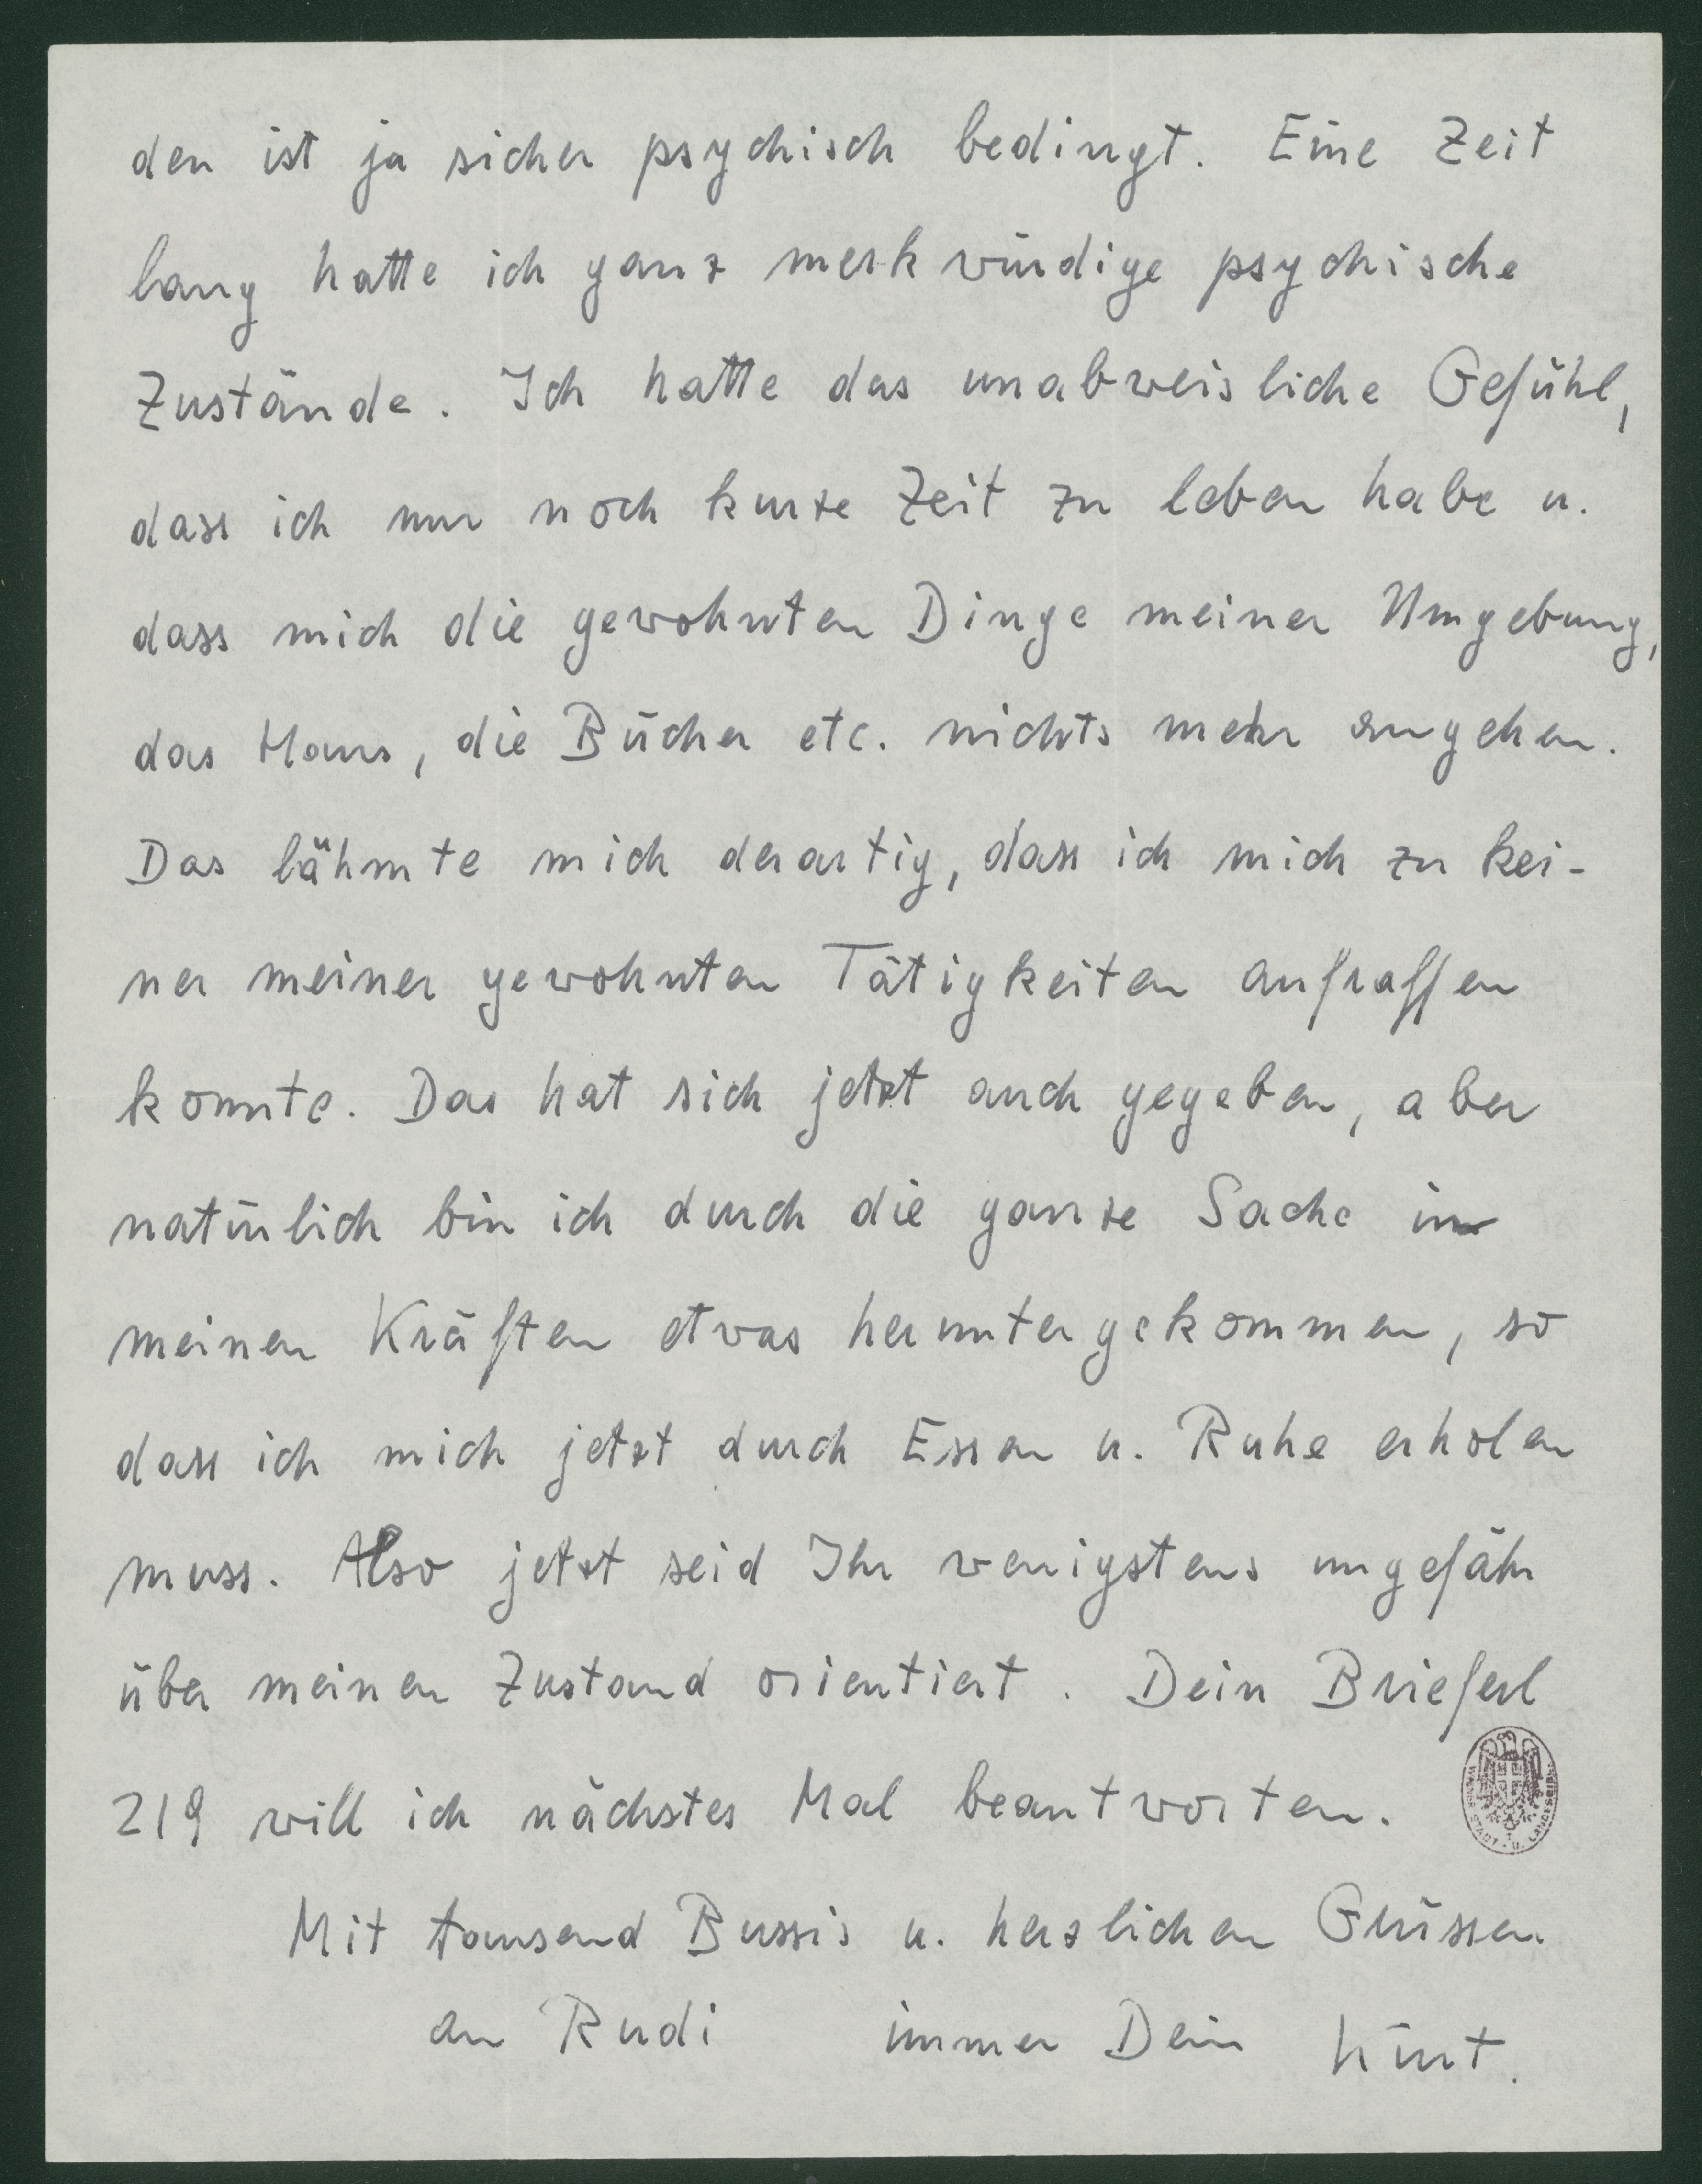 den ist ja sicher psychisch bedingt. Eine Zeit
lang hatte ich ganz merkwürdige psychische
Zustände. Ich hatte das unabweisliche Gefühl,
dass ich nur noch kurze Zeit zu leben habe u.
dass mich die gewohnten Dinge meiner Umgebung,
das Haus, die Bücher etc. nichts mehr angehen.
Das lähmte mich derartig, dass ich mich zu kei-
ner meiner gewohnten Tätigkeiten aufraffen
konnte. Das hat sich jetzt auch gegeben, aber
natürlich bin ich durch die ganze Sache in
meinen Kräften etwas heruntergekommen, so
dass ich mich jetzt durch Essen u. Ruhe erholen
muss. Also jetzt seid Ihr wenigstens ungefähr
über meinen Zustand orientiert. Dein Brieferl
219 will ich nächstes Mal beantworten.
Mit tausend Bussis u. herzlichen Grüssen
an Rudi immer Dein Hürt.